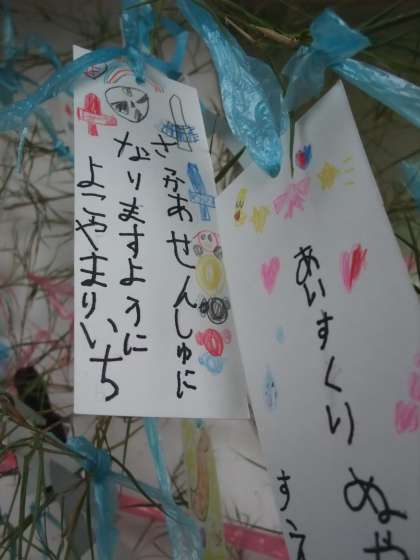 さかあせんしゅに
なりますように
よこやまりいち
あいすくり
ぬや
すえ